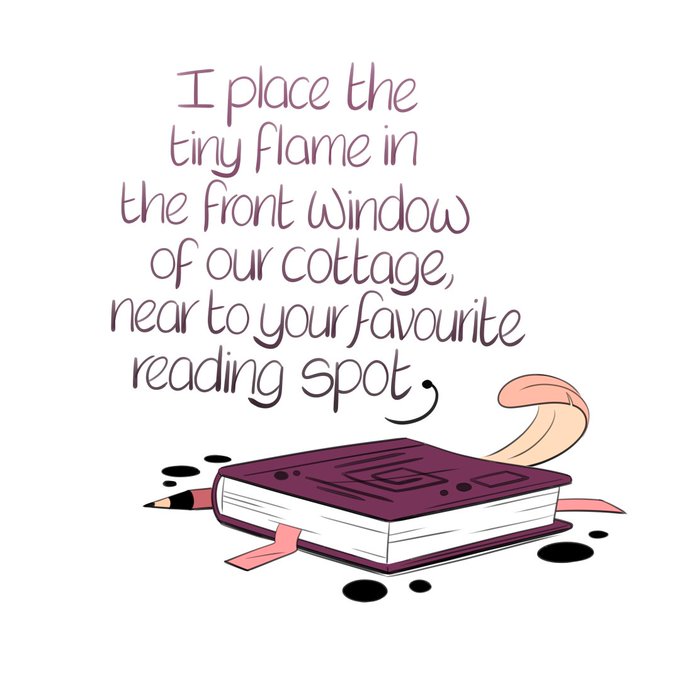 I place the
tiny flame in
the front window
of our cottage,
near to your favourite
reading spot,